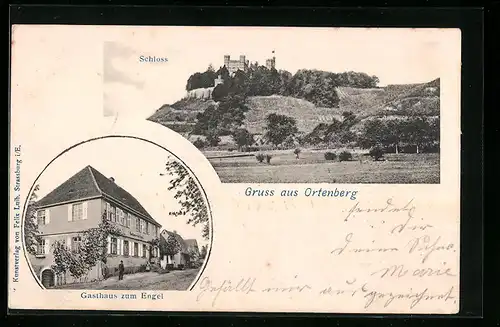 Schloss
Gruss aus Ortenberg
Kunstverlag von Felix Luib, Strassburg i/E.
Gasthaus zum Engel
sendet
Dir
deine
Marie
Gefällt mir ausgezeichnet